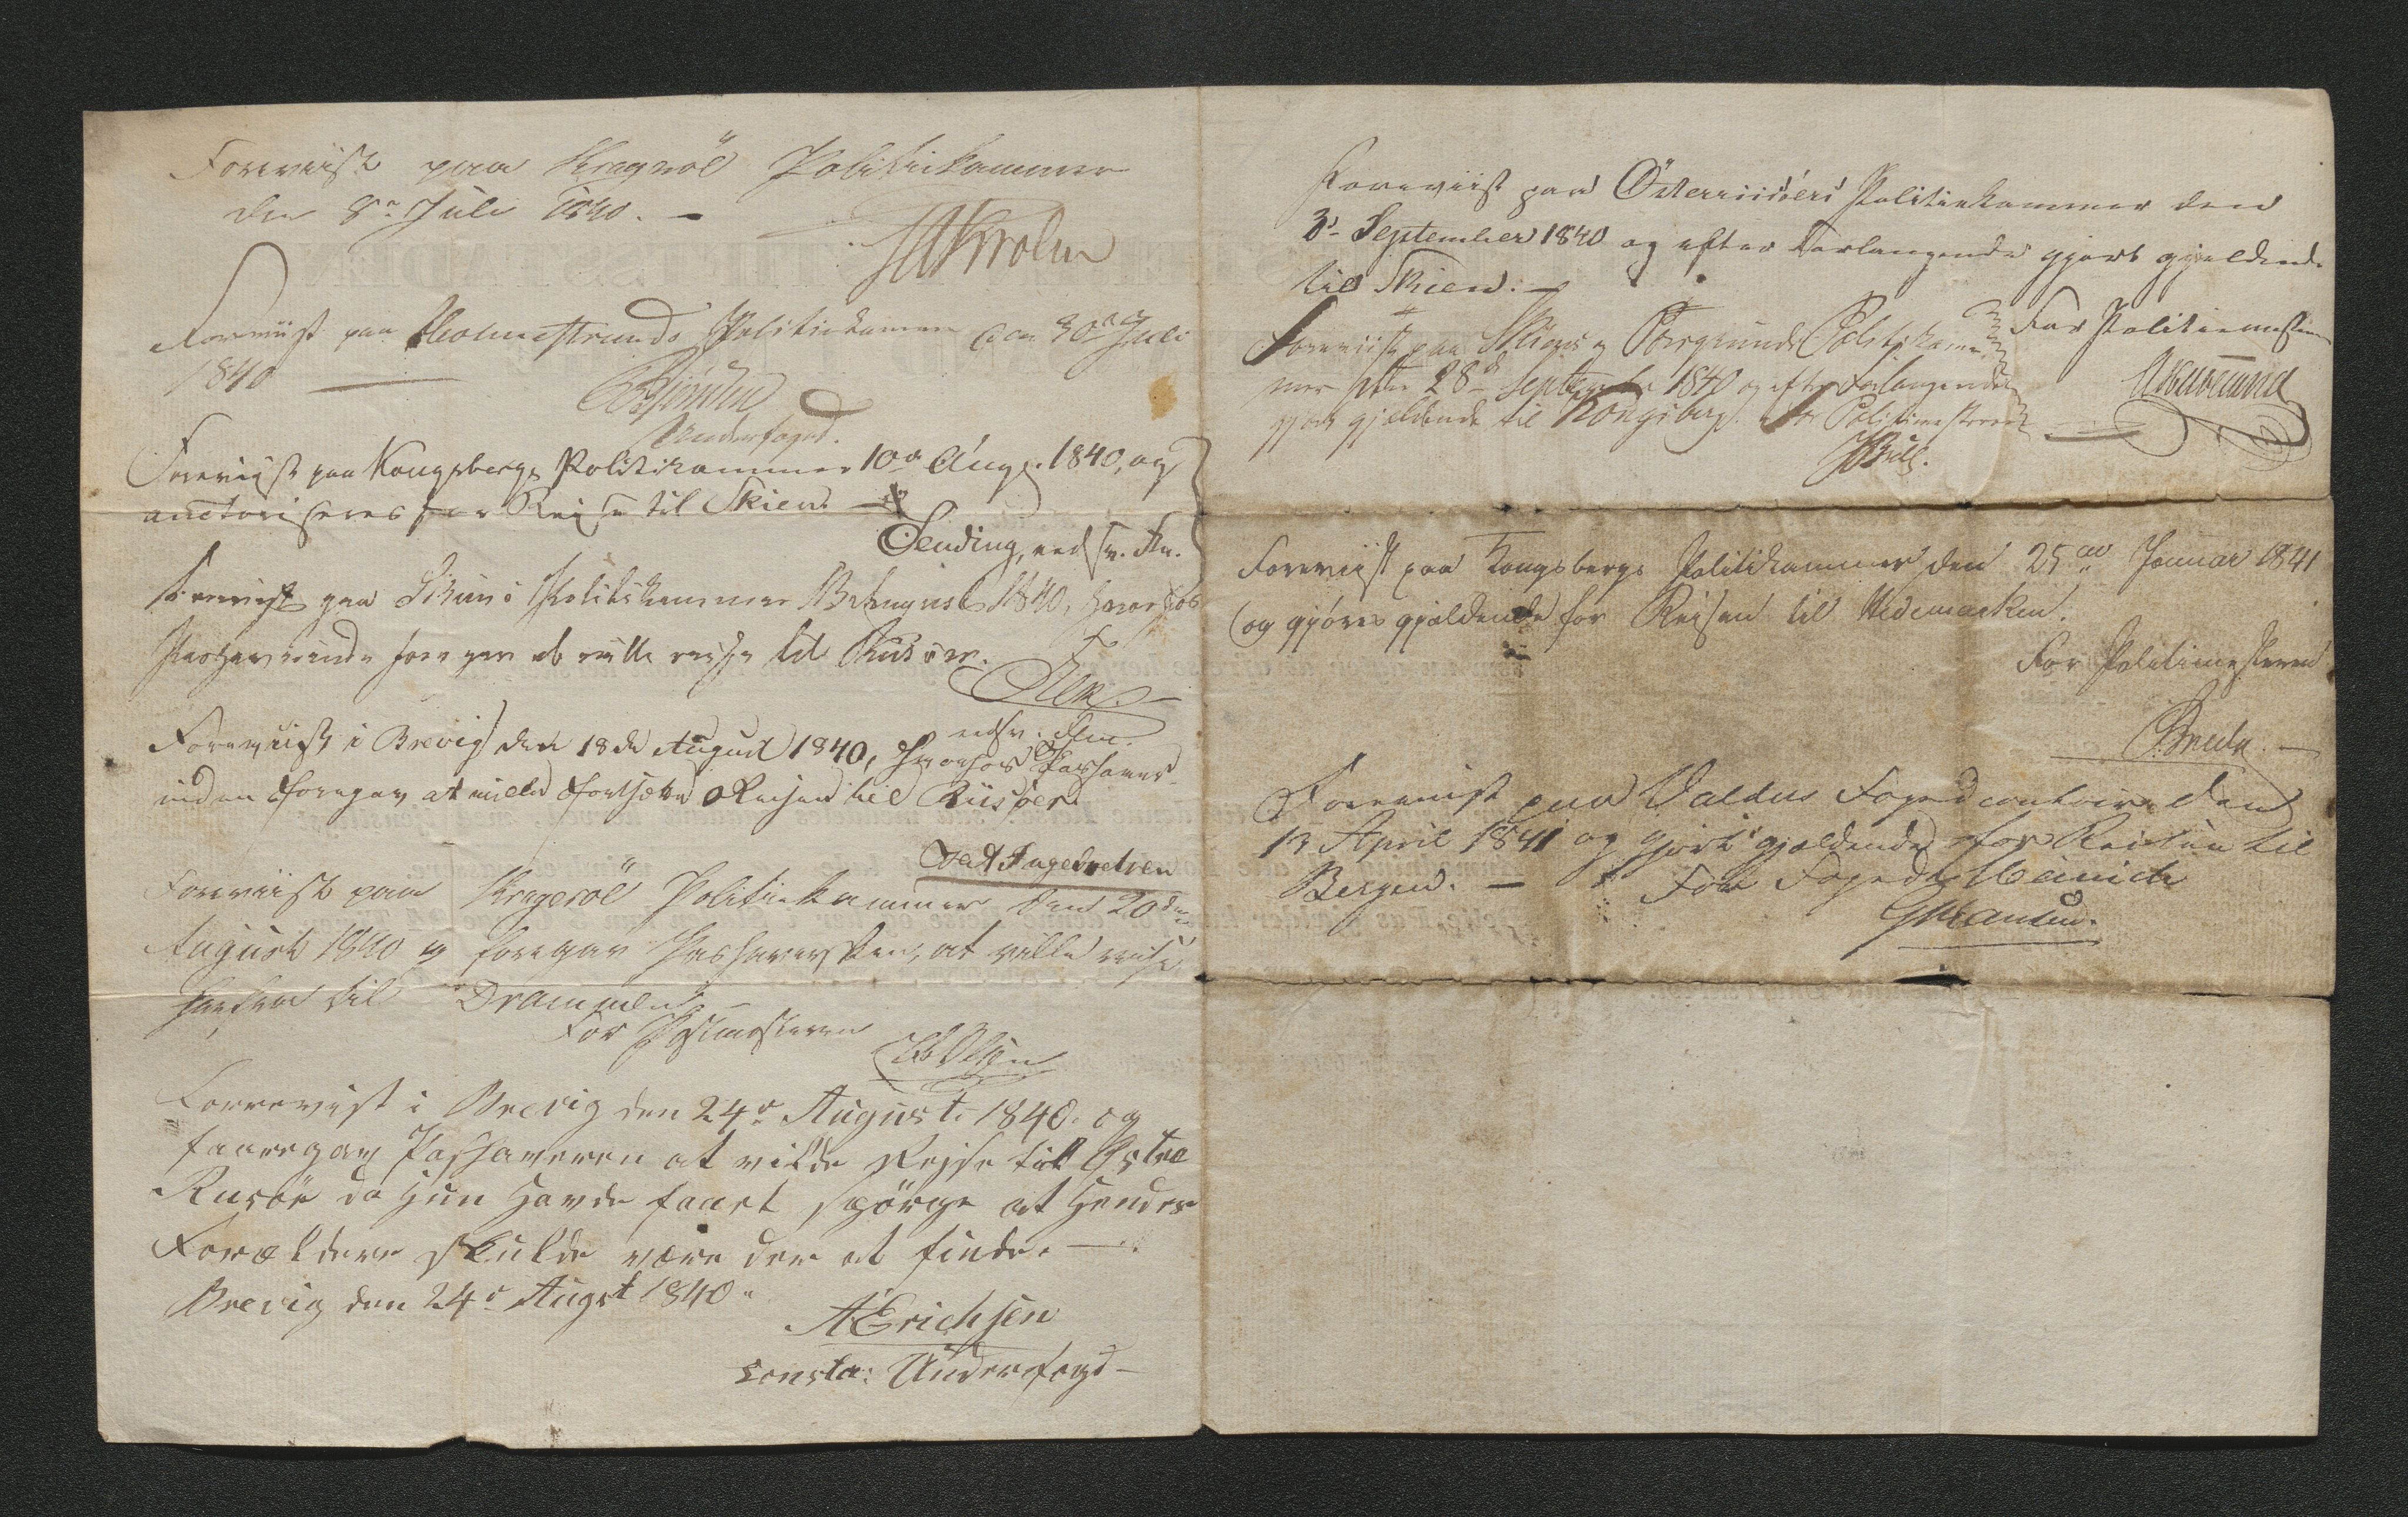 Foreviist paa Kragerøe Politiekammer
den 8de Juli 1840. –
Foreviist paa Holmestrands Politiekammer den 30te Juli
1840
Underfoged.
Foreviist paa Kongsbergs Politikammer 10de Aug. 1840, og
auctoriseres for Reise til Skien
Sending, eedsv. Fm.
Foreviist paa Skiens Politikammer 13 August 1840, hvorhos
Pashaverinde foregav at ville reise til Riisøer.
edsv. Fm.
Foreviist i Brevig den 18de August 1840, hvorhos Pashaver-
inden foregav at ville fortsætte Reisen til Riisøer
Ingebretsen
Foreviist paa Kragerøe Politiekammer den 20de
August 1840 og foregav Pashaversken, at ville reise
herfra til Drammen. –
For Politmesteren
Olsen
Forrevist i Brevig den 24de August 1840. og
foaregav Pashaveren at vilde Rejse till Østre
Rusøe da Hun Havde faaet spørge at Hendes
Forældere skulde være der at finde. –
Brevig den 24de Augst 1840.
A Erichsen
Consta: Underfogd –
Foreviist paa Østerriisøers Politiekammer den
3die September 1840 og efter Forlangende gjort gjeldende
til Skien. –
For Politiemesteren
Foreviist paa Skiens og Porsgrunds Politikam-
mer den 28de September 1840 og efter Forlangende
gjort gjældende til Kongsberg. For Politimesteren
Bull.
Foreviist paa Kongsbergs Politikammer den 25de Januar 1841
og gjøres gjældende for Reisen til Hedemarken.
For Politimesteren
Foreviist paa Valdres Fogedcontoir den
13 April 1841 og gjort gjældende for Reisen til
Bergen. – For Foged Meinich